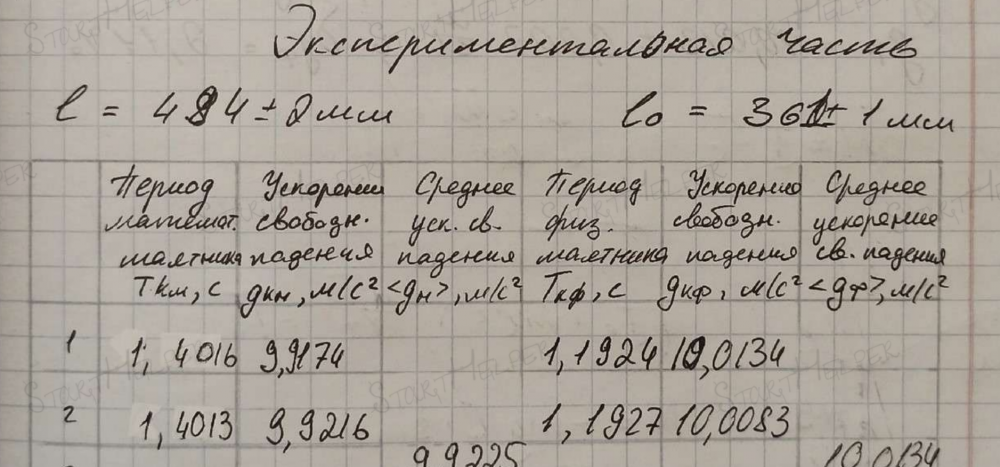 Экспериментальная часть
l = 494 ± 2 мм l₀ = 361 ± 1 мм
Период Ускорение Среднее Период Ускорение Среднее
математ. свободн. уск. св. физ. свободн. ускорение
маятника падения падения маятника падения св. падения
Tкм, с gкм, м/с² <gм>, м/с² Tкф, с gкф, м/с² <gф>, м/с²
1 1,4016 9,9174 1,1924 10,0134
2 1,4013 9,9216 1,1927 10,0083
9,9225 10,0134